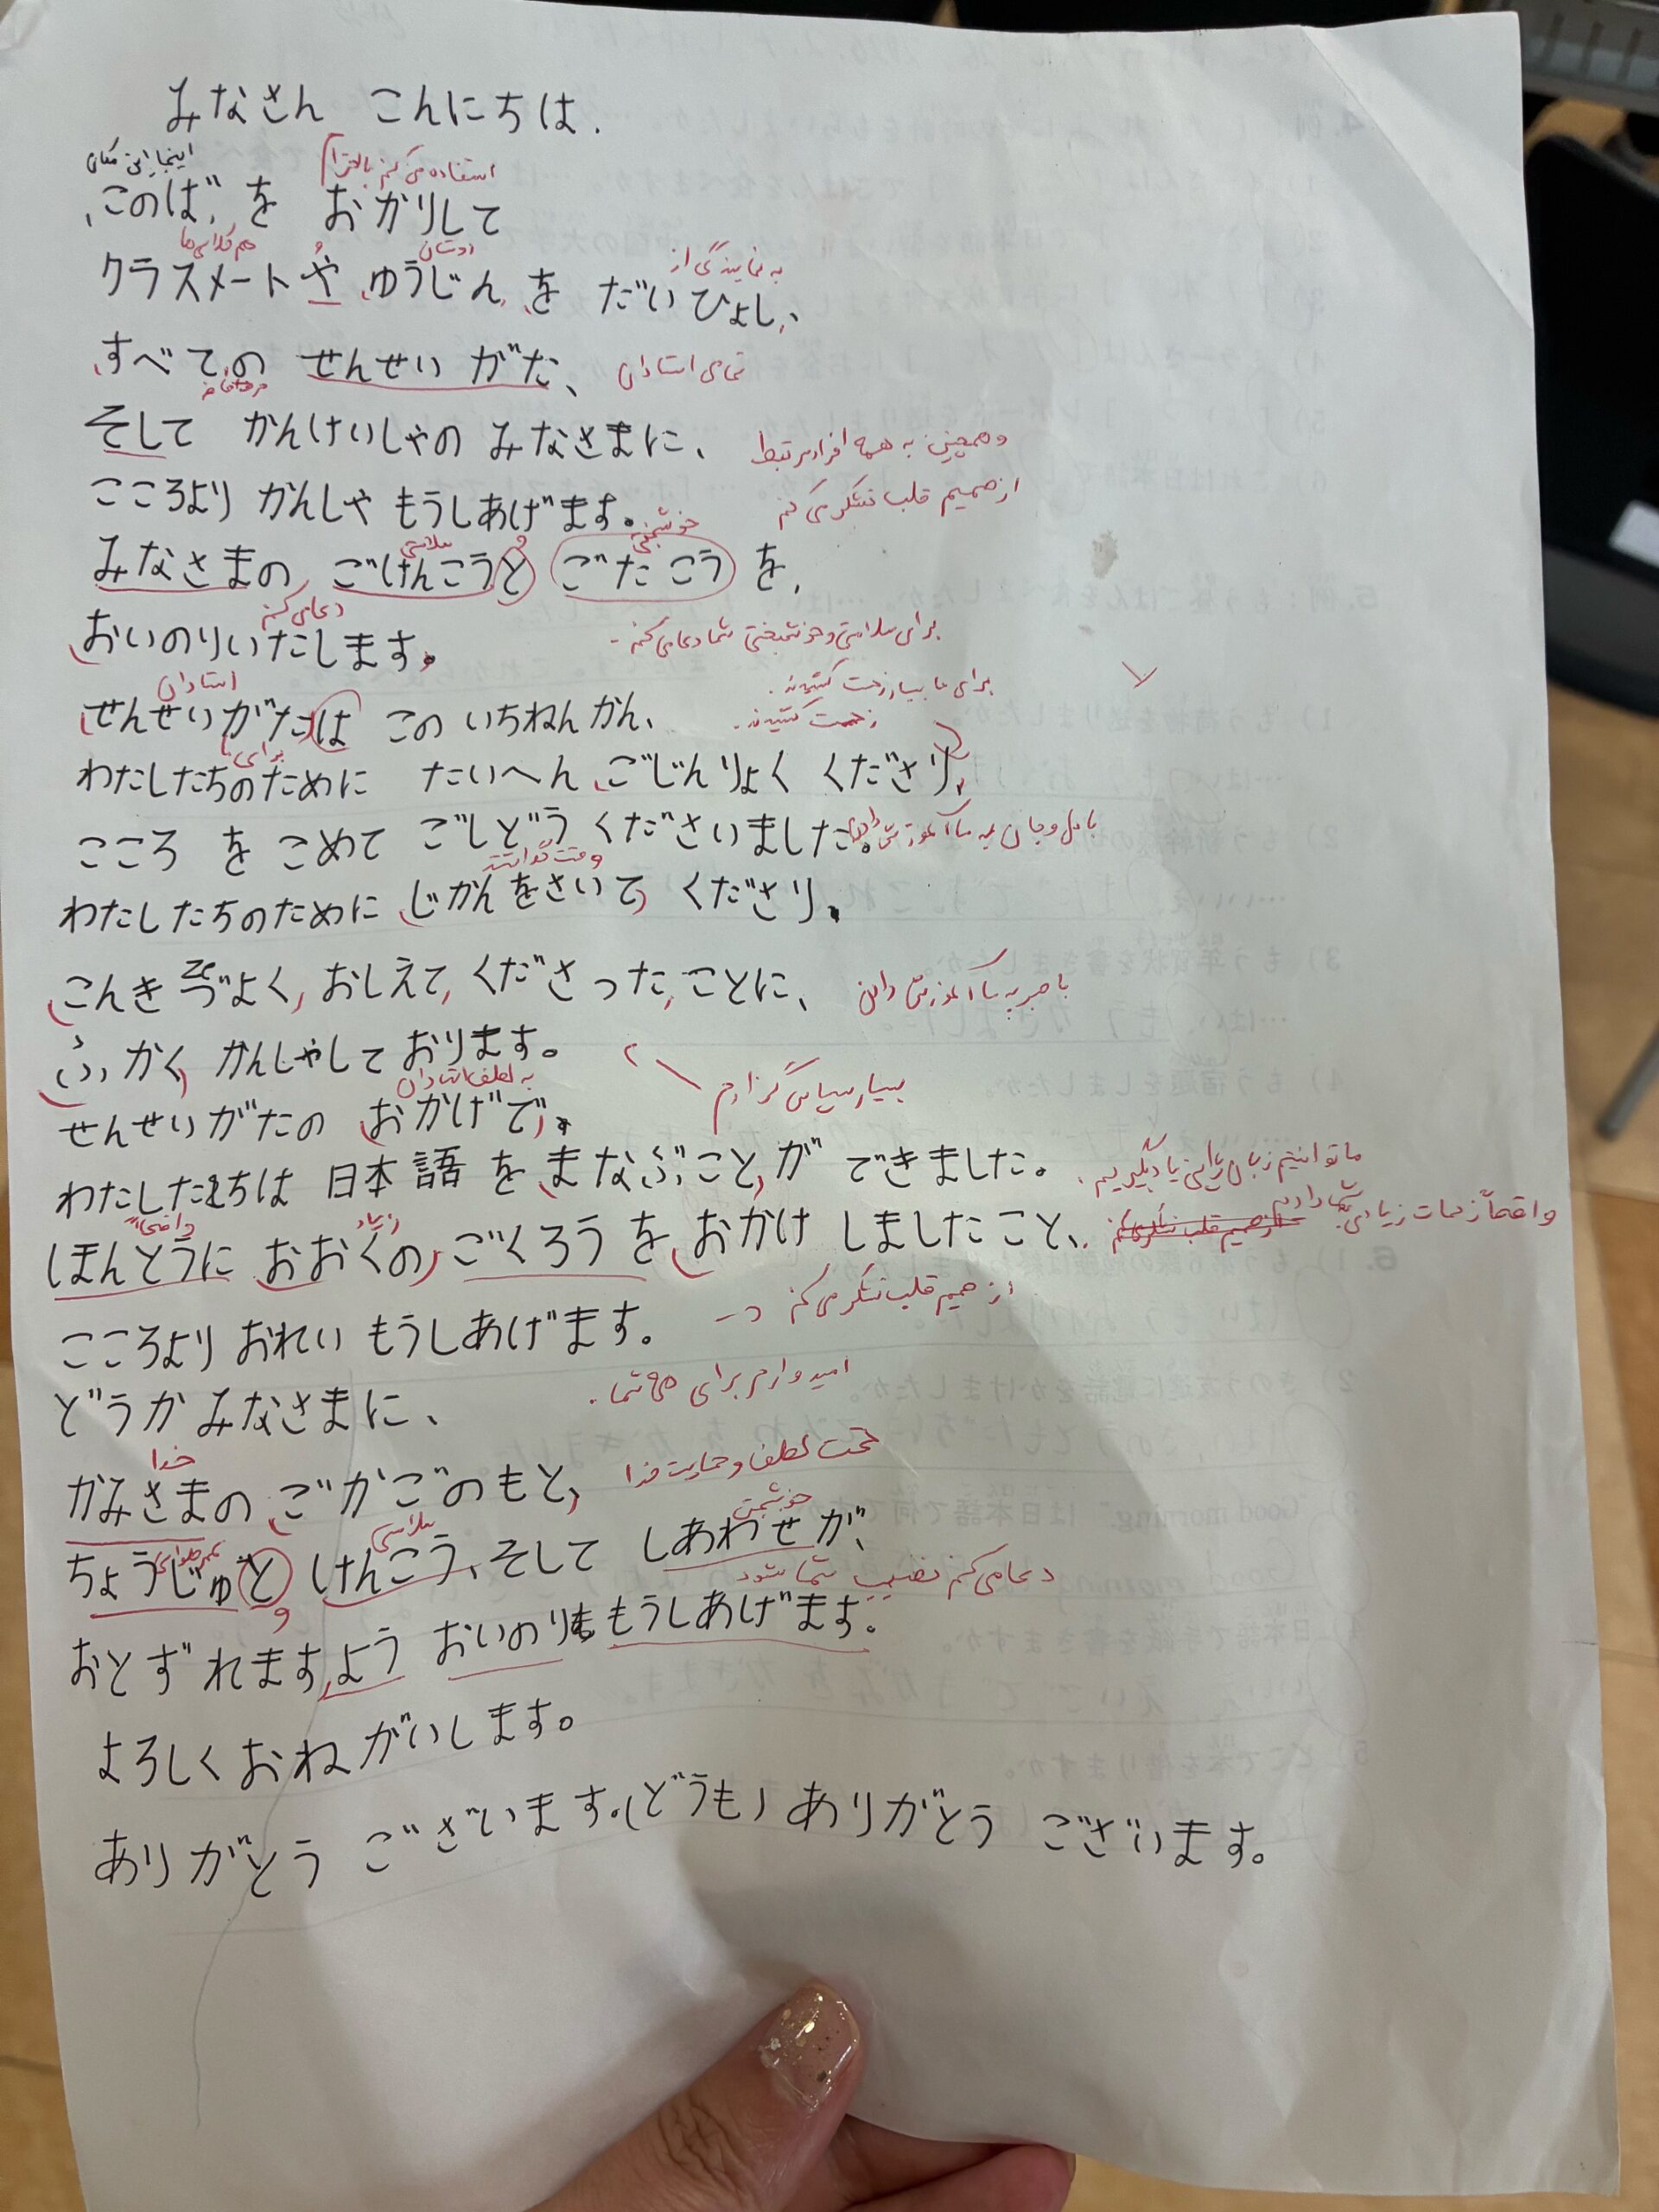 みなさん こんにちは.
اینجا این مکان
استفاده می کنم بالاترا
このばを おかりして
هم کلاسی ها و دوستان به نمایندگی از
クラスメートや ゆうじん を だいひょし、
すべての せんせい がた、 تمامی استادان
そして かんけいしゃの みなさまに、 وهمچنین به همه افراد مرتبط
こころより かんしゃ もうしあげます。 از صمیم قلب تشکر می کنم
سلامتی و خوشبختی
みなさまの ごけんこうと ごたこう を、
دعا می کنم
おいのりいたします。 برای سلامتی و خوشبختی شما دعا می کنم
استادان برای ما بسیار زحمت کشیدند.
せんせいがたは この いちねんかん、 زحمت کشیدند.
برای ما
わたしたちのために たいへん ごじんりょく くださり、
こころ をこめて ごしどう くださいました。 با دل و جان به ما آموزش دادن
وقت گذاشتند
わたしたちのために じかんをさいて くださり、
こんき づよく おしえて くださった ことに、 با صبر به ما آموزش دادن
ふかく かんしゃして おります。 بسیار سپاس گزارم
به لطف استادان
せんせいがたの おかげで、
わたしたちは 日本語 を まなぶこと が できました。 ما توانستیم زبان ژاپنی یاد بگیریم.
واقعاً زیاد
ほんとうに おおくの ごくろう を おかけ しましたこと、 واقعاً زحمات زیادی به شما دادیم
こころより おれい もうしあげます。 از صمیم قلب تشکر می کنم
どうか みなさまに、 امیدوارم برای همه شما.
خدا
かみさまの ごかごのもと、 تحت لطف و حمایت خدا
عمر طولانی و سلامتی خوشبختی
ちょうじゅと けんこう、そして しあわせが、
دعا می کنم نصیب شما شود
おとずれますよう おいのり もうしあげます。
よろしく おねがいします。
ありがとう ございます。(どうも) ありがとう ございます。